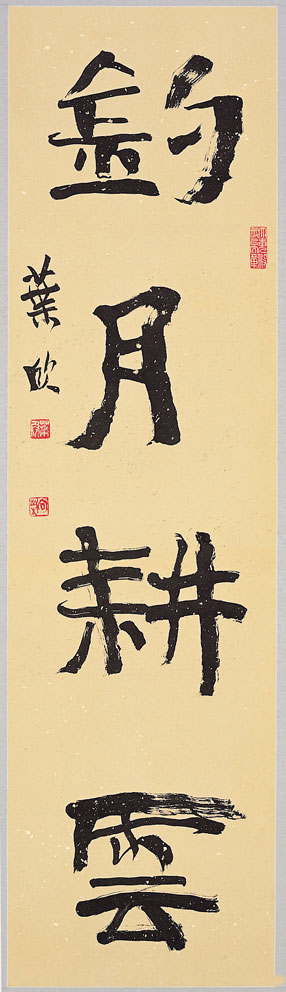 釣月耕雲
葉欣